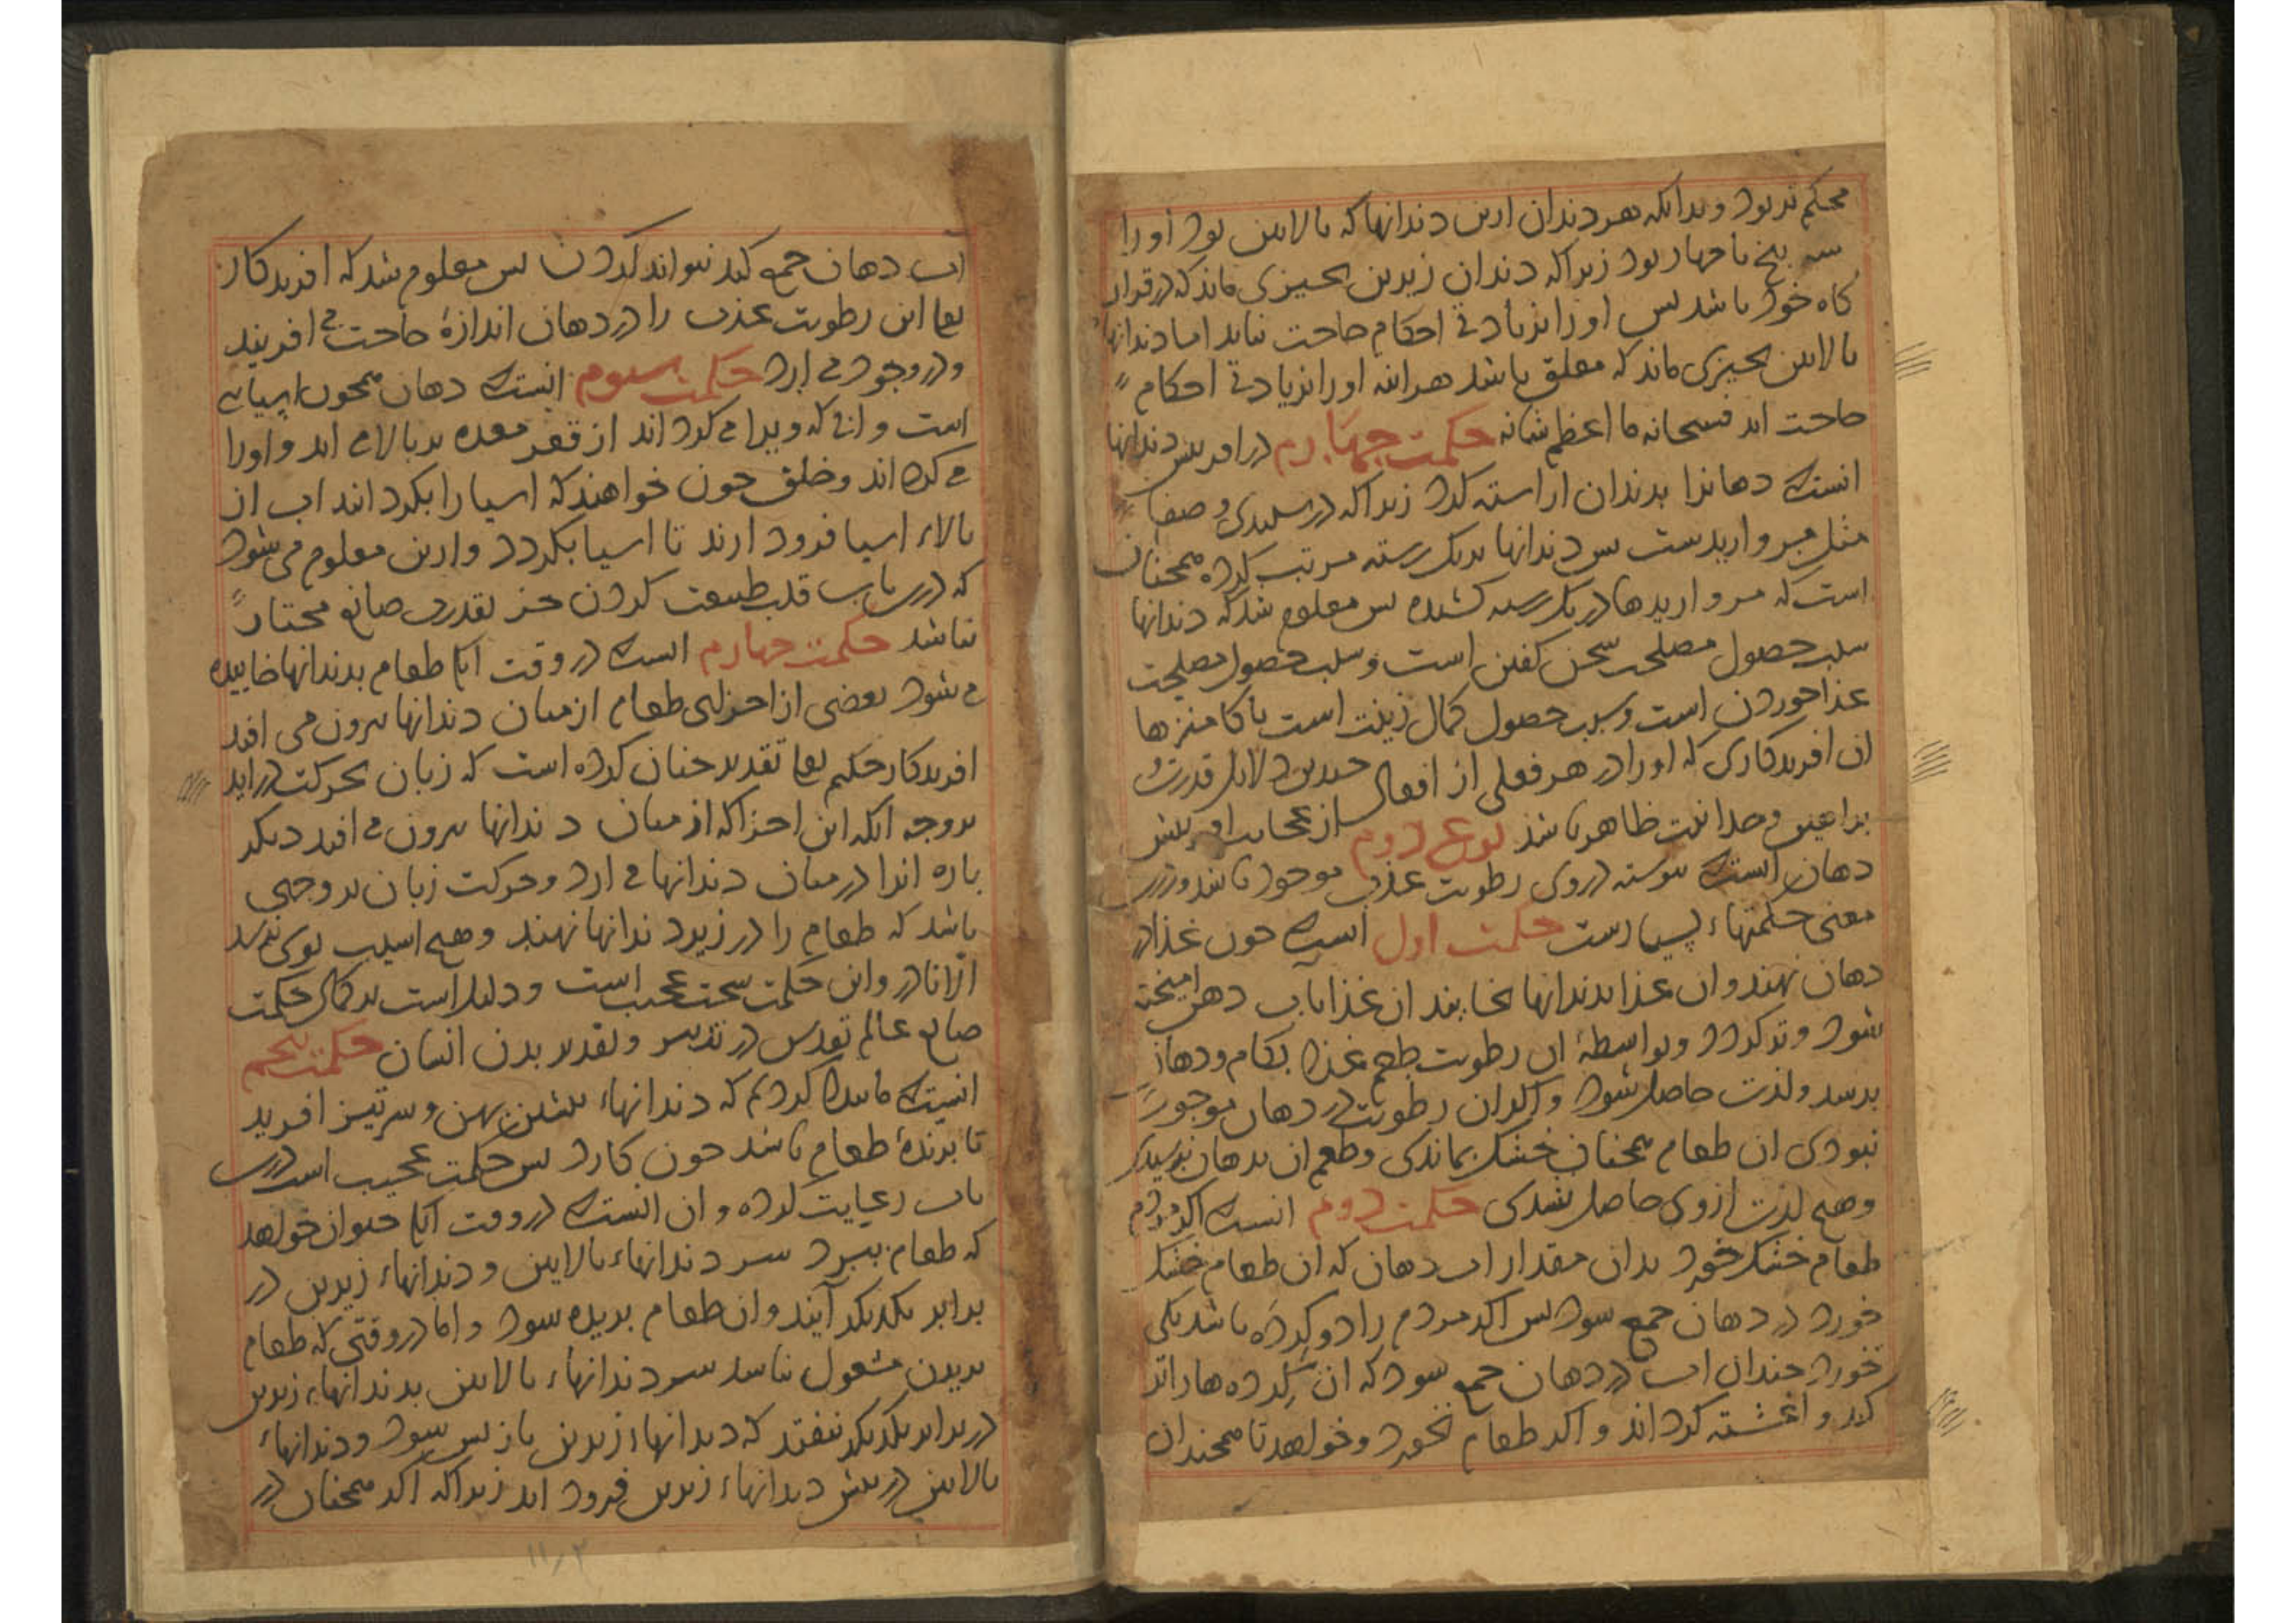 محکم تر بود و بدانکه هر دندان ازین دندانها که بالایین بود او را
سه بیخ یا چهار بود زیرا که دندان زیرین بچیزی ماند که در قرار
کاه خود باشد پس او را بزیادتی احکام حاجت نیاید اما دندانهاء
بالایین بچیزی ماند که معلق باشد هراینه او را بزیادتی احکام
حاجت اید فسبحانه ما اعظم شانه حکمت چهارم در افرینش دندانها
انست که دهانرا بدندان اراسته کرد زیرا که در سپیدی و صفا
مثل مروارید ست پس دندانها بر یک رسته مرتب کرده همچنان
است که مرواریدها در یک رسته کشیده پس معلوم شد که دندانها
سبب حصول مصلحت سخن کفتن است و سبب حصول مصلحت
غذا خوردن است و سبب حصول کمال زینت است پاکا منزها
ان افریدکاری که او را در هر فعلی از افعال چندین دلایل قدرت و
براهین وحدانیت ظاهر باشد نوع دوم از عجایب افرینش
دهان انست که پیوسته در وی رطوبت عذب موجود باشد و درین
معنی حکمتهاء بسیارست حکمت اول انست که چون غذا در
دهان نهند و ان غذا بدندانها بخایند ان غذا باب دهن امیخته
شود و تر کردد و بواسطهٔ ان رطوبت طعم غذا بکام و دهان
برسد و لذت حاصل شود و اکر ان رطوبت در دهان موجود
نبودی ان طعام همچنان خشک بماندی و طعم ان بدهان نرسیدی
و هیچ لذت از وی حاصل نشدی حکمت دوم انست که اکر مردم
طعام خشک خورد بدان مقدار اب دهان که ان طعام خشک
خورد در دهان جمع شود پس اکر مردم را دو کرده باشد یکی
خورد چندان اب در دهان جمع شود که ان کرده ها را تر
کند و اغشته کرداند و اکر طعام نخورد و خواهد تا همچندان
اب دهان جمع کند نتواند کردن پس معلوم شد که افریدکار
تعالی این رطوبت عذب را در دهان اندازهٔ حاجت می افریند
و در وجود می ارد حکمت سوم انست که دهان همچون اسیایی
است و ابی که ویرا می کرداند از قعر معده بر بالا می اید و او را
می کرداند و خلق چون خواهند که اسیا را بکردانند اب از
بالاء اسیا فرود ارند تا اسیا بکردد و ازین معلوم می شود
که درین باب قلب طبیعت کردن جز بقدرت صانع مختار
نباشد حکمت چهارم انست که در وقت انکه طعام بدندانها خاییده
می شود بعضی از اجزای طعام از میان دندانها بیرون می افتد
افریدکار حکیم تعالی تقدیر چنان کرده است که زبان بحرکت در اید
بر وجه انکه این اجزا که از میان دندانها بیرون می افتد دیکر
باره انرا در میان دندانها می ارد و حرکت زبان بر وجهی
باشد که طعام را در زیر دندانها نهند و هیچ اسیب بوی نرسد
از انا در و این حکمت سخت عجیب است و دلیل است بر کمال حکمت
صانع عالم تقدس در تدبیر و تقدیر بدن انسان حکمت پنجم
انست که ما بیان کردیم که دندانهاء پیشین پهن و سر تیز افرید
تا برندهٔ طعام باشد چون کارد پس حکمت عجیب است درین
باب رعایت کرده و ان انست که در وقت انکه حیوان خواهد
که طعام ببرد سر دندانهاء بالایین و دندانهاء زیرین در
برابر یکدیکر آیند و ان طعام بریده شود و اما در وقتی که طعام
بریدن مشغول نباشد سر دندانهاء بالایین بدندانهاء زیرین
در برابر یکدیکر نیفتد که دندانهاء زیرین باز پس شود و دندانهاء
بالایین در پیش دندانهاء زیرین فرود اید زیرا که اکر همچنان در